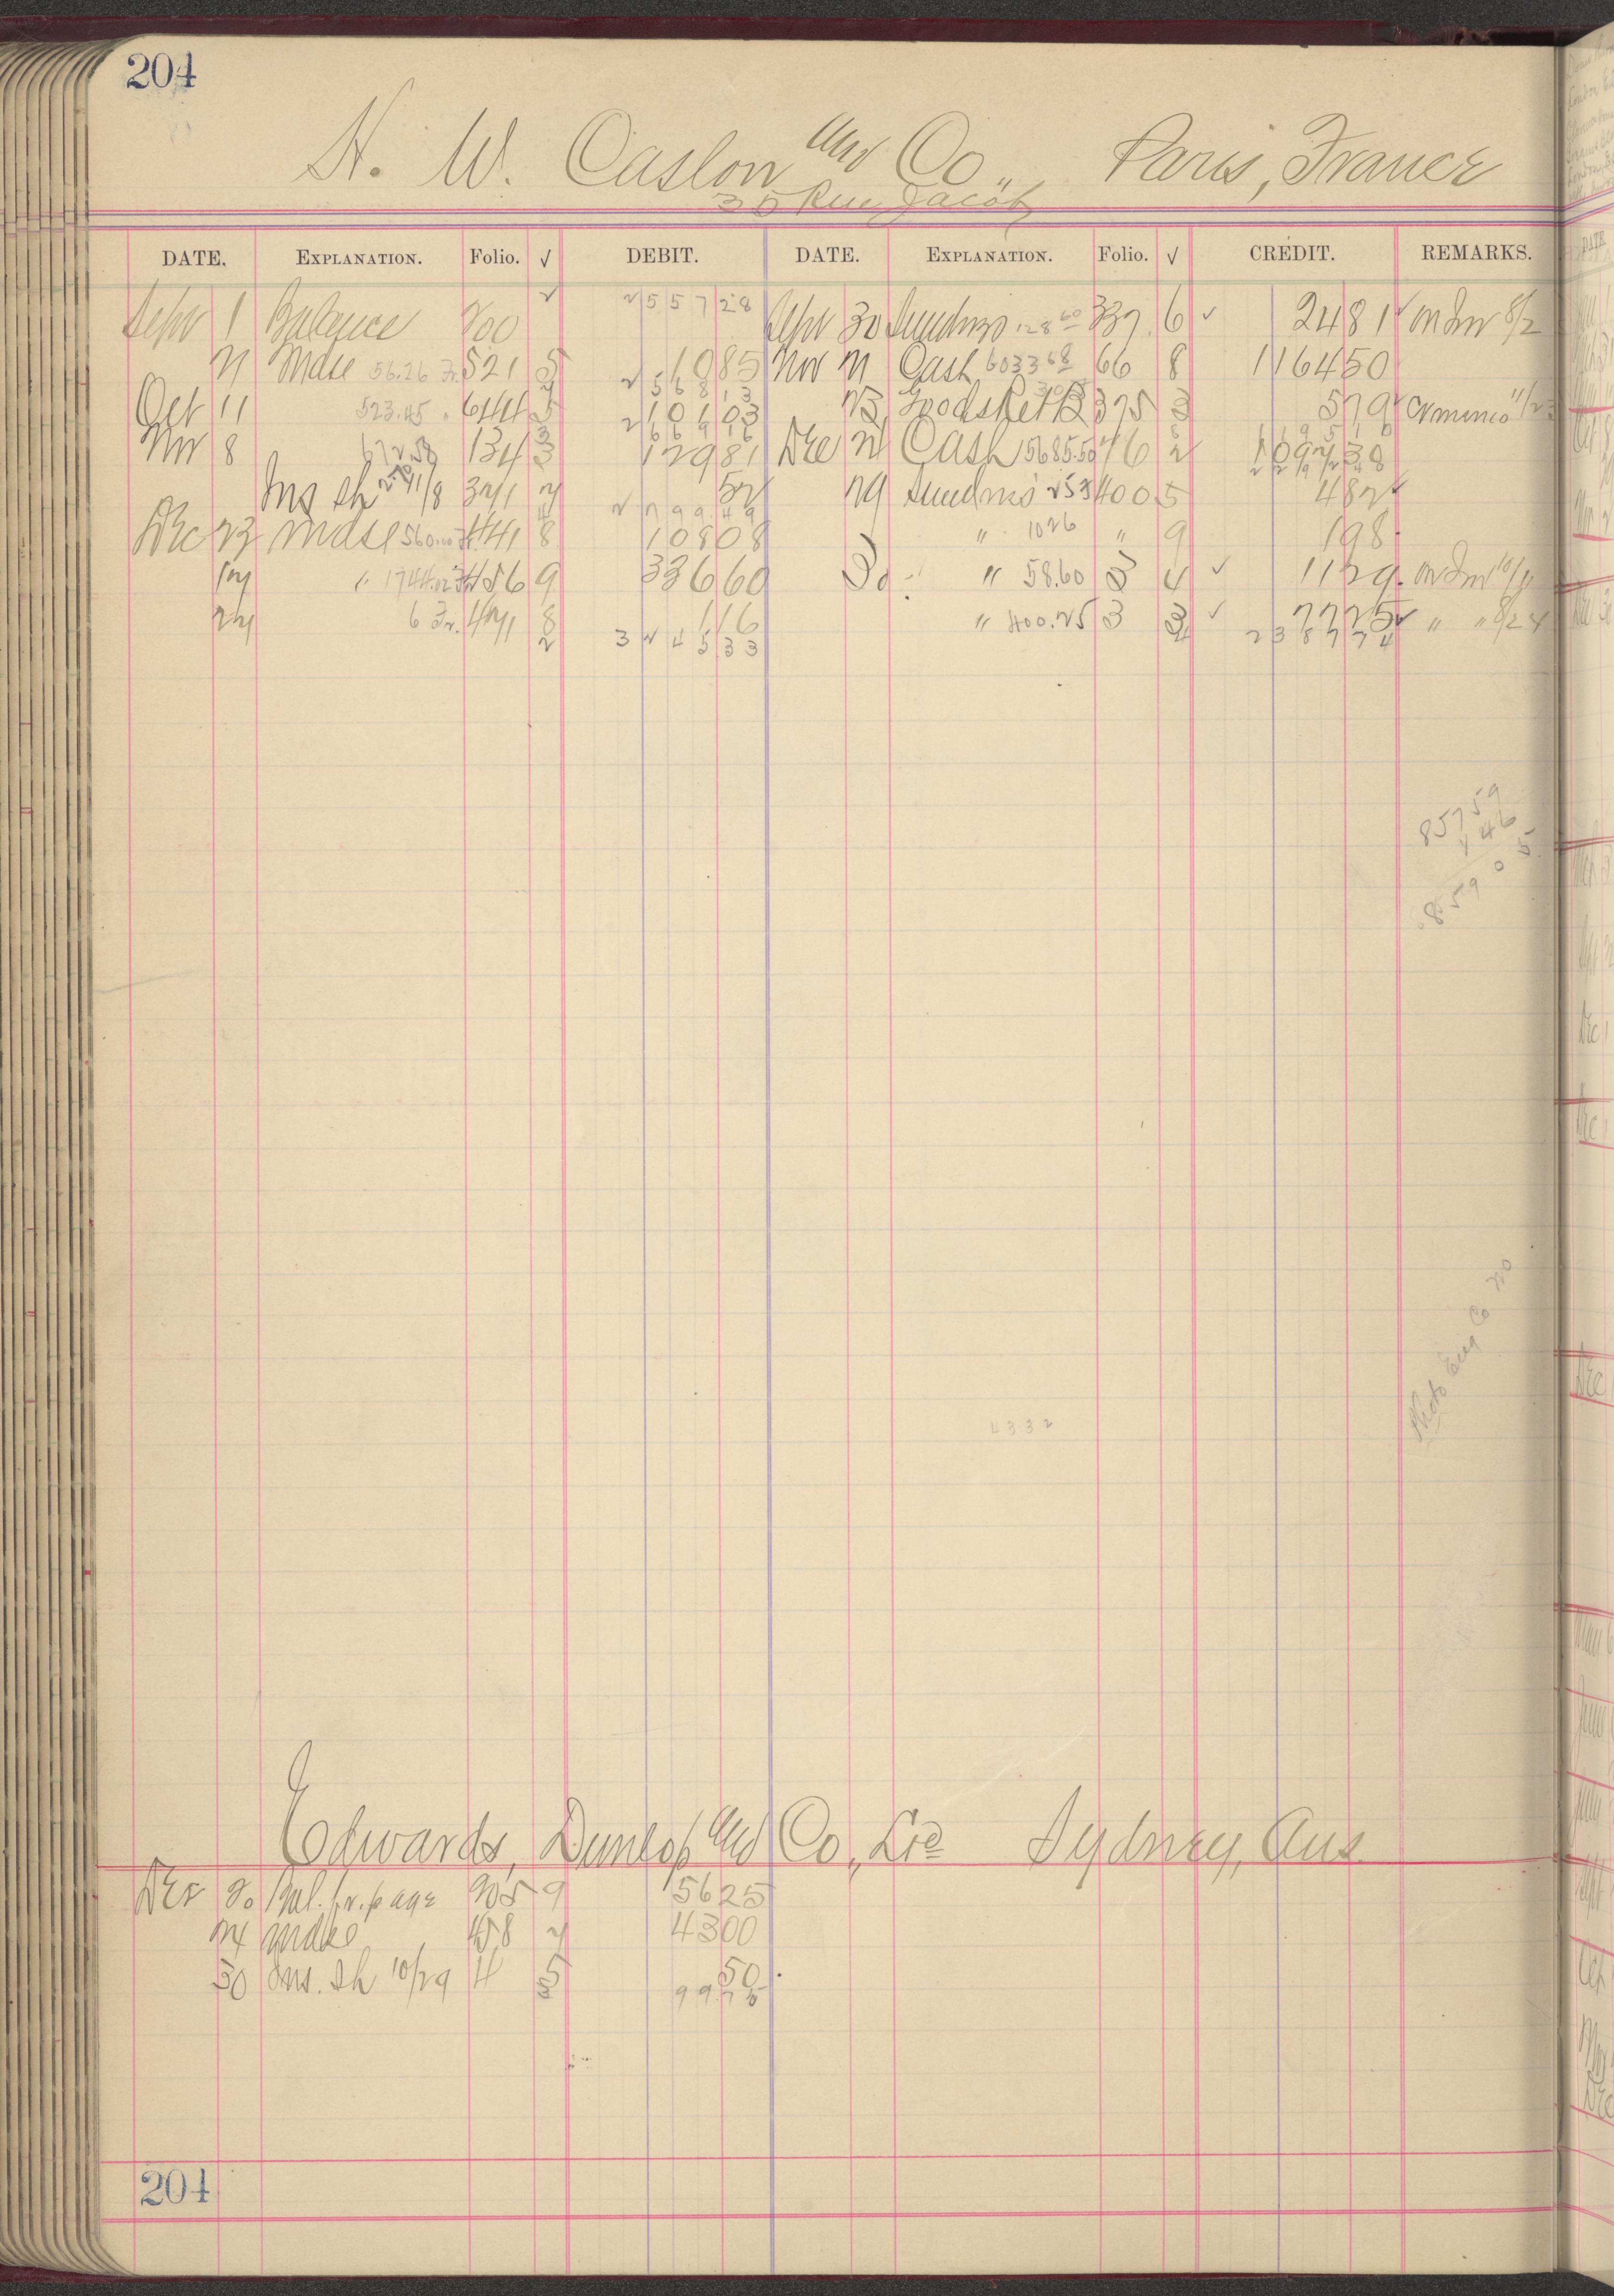 204
H. W. Caslon and Co., Paris, France
35 Rue Jacob
DATE. EXPLANATION. Folio. √ DEBIT. DATE. EXPLANATION. Folio. √ CREDIT. REMARKS.
Sept 1 Balance 200 2557 28 Sept 30 Sundries 128 60 337 6 ✓ 24 81 on Inv 8/2
Mdse 56.26 Fr. 521 5 10 85 Nov Cash 6033 68 66 8 1164 50
2568 13
Oct 11 523.45 " 644 101 03 Goods Ret 375 3 5 79
2669 16
Nov 8 672.58 134 3 129 81 Dec Cash 5685.50 46 2 1097 38
Ins sh 11/8 52 Sundries 400 5 4 82
2799 49
Dec 23 Mdse 560.00 Fr. 441 8 108 08 " 10 26 " 9 1 98
" 1744.02 Fr 456 9 336 60 30 " 58.60 3 4 ✓ 11 29 on Inv
6 Fr. 8 1 16 " 400.25 3 3 ✓ 77 25 " " 8/24
3245 33 2387 74
857 59
1 46
859 05
Photo Eng Co
4332
Edwards, Dunlop and Co., Ltd Sydney, Aus
Dec Bal. fr. page 205 9 56 25
24 Mdse 458 43 00
30 Ins. Sh 10/29 4 5 50
99 75
204